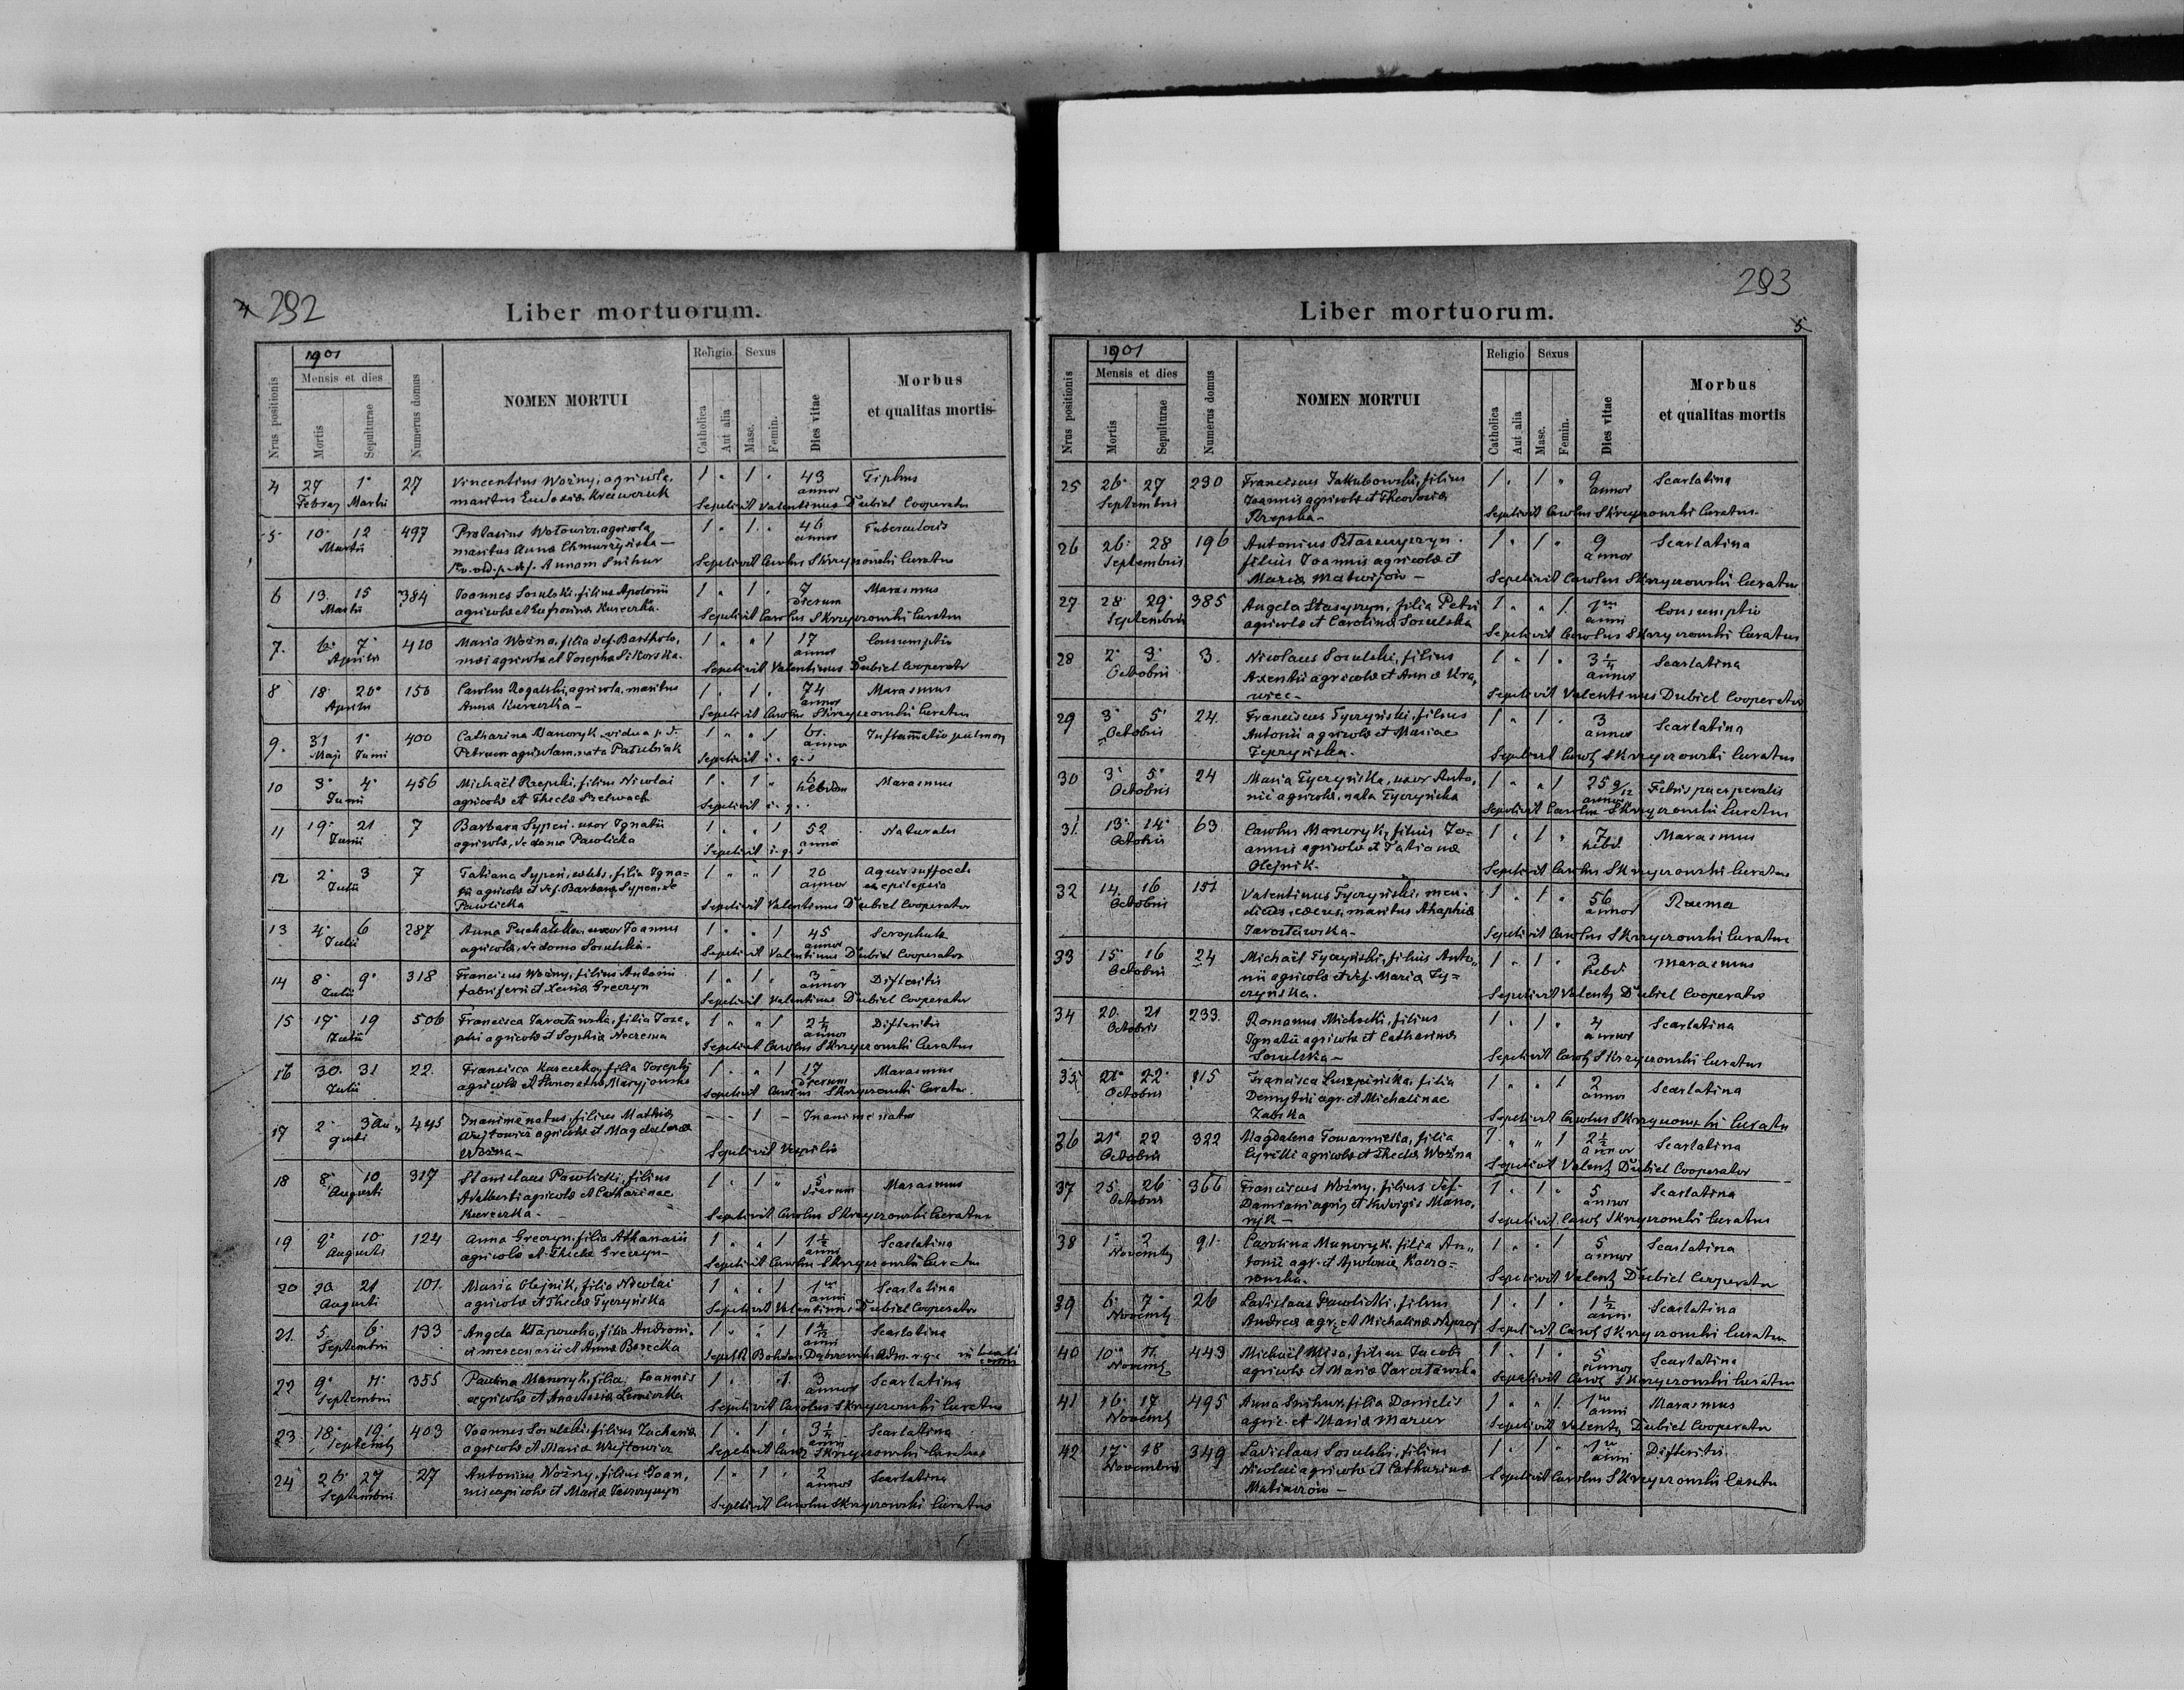 4 292
Liber mortuorum.
1901
Mensis et dies
Nrus positionis
Mortis
Sepulturae
Numerus domus
NOMEN MORTUI
Religio
Sexus
Catholica
Aut alia
Masc.
Femin.
Dies vitae
Morbus
et qualitas mortis
4 27 1 27 Vincentius Woźny, agricola, 1 " 1 " 43 Tiphus
Februar Martii maritus Eudoxiæ annor
Sepelivit Valentinus Dubiel Cooperator
5 10 12 497 agricola 1 " 1 " 46 Tuberculosis
Martii maritus Annæ Chmurzyńska — annor
Annam Snihur Sepelivit Carolus Skrzyszowski Curatus
6 13 15 384 Joannes Sosulski, filius Apolonii 1 " 1 " 7 Marasmus
Martii agricolæ et Eufrosinæ Kurczka. dierum
Sepelivit Carolus Skrzyszowski Curatus
7. 6 7 410 Maria Woźna, filia def. Bartholo, 1 " " 1 17 Consumptio
Aprilis mæi agricolæ et Josephæ Sikorska. annor
Sepelivit Valentinus Dubiel Cooperator
8 18 20 150 Carolus Rogalski, agricola, maritus 1 " 1 " 74 Marasmus
Aprilis Annæ Kurczka — annor
Sepelivit Carolus Skrzyszowski Curatus
9. 31 1 400 Catharina Manoryk, vidua p. d. 1 " " 1 61. pulmon
Maji Junii Petrum agricolam, nata annor
Sepelivit i. q. s
10 3 4 456 Michaël Rzepski, filius Nicolai 1 " 1 " 6 Marasmus
Junii agricolæ et Theclæ hebdom
Sepelivit i. q.
11 19 21 7 Barbara Sypeń, uxor Ignatii 1 " " 1 52 Naturalis
Junii agricolæ, de domo Pawlicka annor
Sepelivit i. q. s
12 2 3 7 Tatiana Sypeń, cælebs, filia Igna= 1 " " 1 20 Aquis suffocata
Julii tii agricolæ et def. Barbaræ Sypeń, de annor ex epilepsia
Pawlicka Sepelivit Valentinus Dubiel Cooperator
13 4 6 287 Anna uxor Joannis 1 " " 1 45
Julii agricolæ, de domo Sosulska — annor
Sepelivit Valentinus Dubiel Cooperator
14 8 9 318 Franciscus Woźny, filius Antonii 1 " 1 " 3 Difteritis
Julii fabri ferri et Xeniæ Greczyn annor
Sepelivit Valentinus Dubiel Cooperator
15 17 19 506 Francisca Jarosławska, filia Jose, 1 " " 1 2 1/4 Difteritis
Julii phi agricolæ et Sophiæ annor
Sepelivit Carolus Skrzyszowski Curatus
16 30. 31 22. Francisca Kurczka, filia Josephi 1 " " 1 17 Marasmus
Julii agricolæ et dierum
Sepelivit Carolus Skrzyszowski Curatus.
17 2 3 Au, 445 Inanime natus, filius Mathiæ – – 1 – Inanime natus
gusti Wojtowicz agricolæ et Magdalenæ
Woźna — Sepelivit Vespilio
18 8 10 317 Stanislaus Pawlicki, filius 1 " 1 " 5 Marasmus
Augusti Adalberti agricolæ et Catharinae dierum
Kurczka — Sepelivit Carolus Skrzyszowski Curatus
19 9 10 124 Anna Greczyn, filia Athanasii 1 " " 1 1 1/2 Scarlatina
Augusti agricolæ et Theclæ Greczyn — anni
Sepelivit Carolus Skrzyszowski Curatus
20 20 21 101. Maria Olejnik, filia Nicolai 1 " " 1 1 Scarlatina
Augusti agricolæ et Theclæ Tyczyńska anni
Sepelivit Valentinus Dubiel Cooperator
21. 5 6 133 Angela filia Androni, 1 " " 1 Scarlatina
Septembris ci mercenarii et Annæ Borecka
Bohdan Adm. r. g. c
22 9 11 355 Paulina Manoryk, filia Joannis 1 " " 1 3 Scarlatina
Septembris agricolæ et Anastasiæ annor
Sepelivit Carolus Skrzyszowski Curatus
23 18 19 403 Joannes Sosulski, filius Zachariæ 1 " 1 " Scarlatina
Septemb agricolæ et Mariæ Wojtowicz
Sepelivit Skrzyszowski Curatus
24 26 27 27 Antonius Woźny, filius Joan, 1 " 1 " 2 Scarlatina
Septembris nis agricolæ et Mariæ annor
Sepelivit Carolus Skrzyszowski Curatus
293
Liber mortuorum.
5
1901
Mensis et dies
Nrus positionis
Mortis
Sepulturae
Numerus domus
NOMEN MORTUI
Religio
Sexus
Catholica
Aut alia
Masc.
Femin.
Dies vitae
Morbus
et qualitas mortis
25 26 27 230 Franciscus Jakubowski, filius 1 " 1 " 9 Scarlatina
Septembris Joannis agricolæ et Theodosiæ annor
Rzepska — Sepelivit Carolus Skrzyszowski Curatus.
26 26 28 196 Antonius 1 " 1 " 9 Scarlatina
Septembris filius Joannis agricolæ et annor
Mariæ Matwijów — Sepelivit Carolus Skrzyszowski Curatus
27 28 29 385 Angela Stasyszyn, filia Petri 1 " " 1 1 Consumptio
Septembris agricolæ et Carolinæ Sosulska anni
Sepelivit Carolus Skrzyszowski Curatus
28 2 3 3. Nicolaus Sosulski, filius 1 " 1 " 3 1/4 Scarlatina
Octobris Axentii agricolæ et Annæ Kra, annor
wiec — Sepelivit Valentinus Dubiel Cooperator
29 3 5 24. Franciscus Tyczyński, filius 1 " 1 " 3 Scarlatina
Octobris Antonii agricolæ et Mariae annor
Tyczyńska. Sepelivit Carol Skrzyszowski Curatus
30 3 5 24 Maria Tyczyńska, uxor Anto, 1 " " 1 25 9/12 Febris puerperalis
Octobris nii agricolæ, nata Tyczyńska annor
Sepelivit Carolus Skrzyszowski Curatus
31. 13 14 63 Carolus Manoryk, filius Jo= 1 " 1 " 7 Marasmus
Octobris annis agricolæ et Tatianæ hebd
Olejnik. Sepelivit Carolus Skrzyszowski Curatus
32 14. 16 151 Valentinus Tyczyński, men= 1 " 1 " 56
Octobris maritus Ahaphiæ annor
Jarosławska — Sepelivit Carolus Skrzyszowski Curatus
33 15 16 24 Michaël Tyczyński, filius Anto, 1 " 1 " 3 Marasmus
Octobris nii agricolæ et def. Mariæ Ty= hebd.
czyńska. Sepelivit Valent Dubiel Cooperator
34 20. 21 233. Romanus Michocki, filius 1 " 1 " 4 Scarlatina
Octobris Ignatii agricolæ et Catharinæ annor
Sosulska — Sepelivit Carol Skrzyszowski Curatus
35 21 22 115 Francisca filia 1 " " 1 2 Scarlatina
Octobris Demytrii agr. et Michalinae annor
Zabska Sepelivit Carolus Skrzyszowski Curatus
36 21 22 322 Magdalena Towarnicka, filia 1 " " 1 2 1/2 Scarlatina
Octobris Cyrilli agricolæ et Theclæ Woźna annor
Sepelivit Valent Dubiel Cooperator
37 25 26 366 Franciscus Woźny, filius def. 1 " 1 " 5 Scarlatina
Octobris Damiani agri et Hedvigis Mano, annor
ryk — Sepelivit Carol Skrzyszowski Curatus
38 1 2 91. Carolina Manoryk, filia An, 1 " " 1 5 Scarlatina
Novemb tonii agr. et Apoloniæ Kaczo= annor
rowska. Sepelivit Valent Dubiel Cooperator
39 6 7 26 Ladislaus Pawlicki, filius 1 " 1 " 1 1/2 Scarlatina
Novemb Andreæ agr et Michalinæ anni
Sepelivit Carol Skrzyszowski Curatus
40 10 11 443 Michaël Misa, filius Jacobi 1 " 1 " 5 Scarlatina
Novemb agricolæ et Mariæ Jarosławska annor
Sepelivit Carol Skrzyszowski Curatus
41 16 17 495 Anna Snihur, filia Danielis 1 " " 1 1 Marasmus
Novemb agric. et Mariæ Mazur anni
Sepelivit Valent Dubiel Cooperator
42 17 18 349 Ladislaus Sosulski, filius 1 " 1 " 1 Difteritis.
Novembris Nicolai agricolæ et Catharinæ anni
Sepelivit Carolus Skrzyszowski Curatus